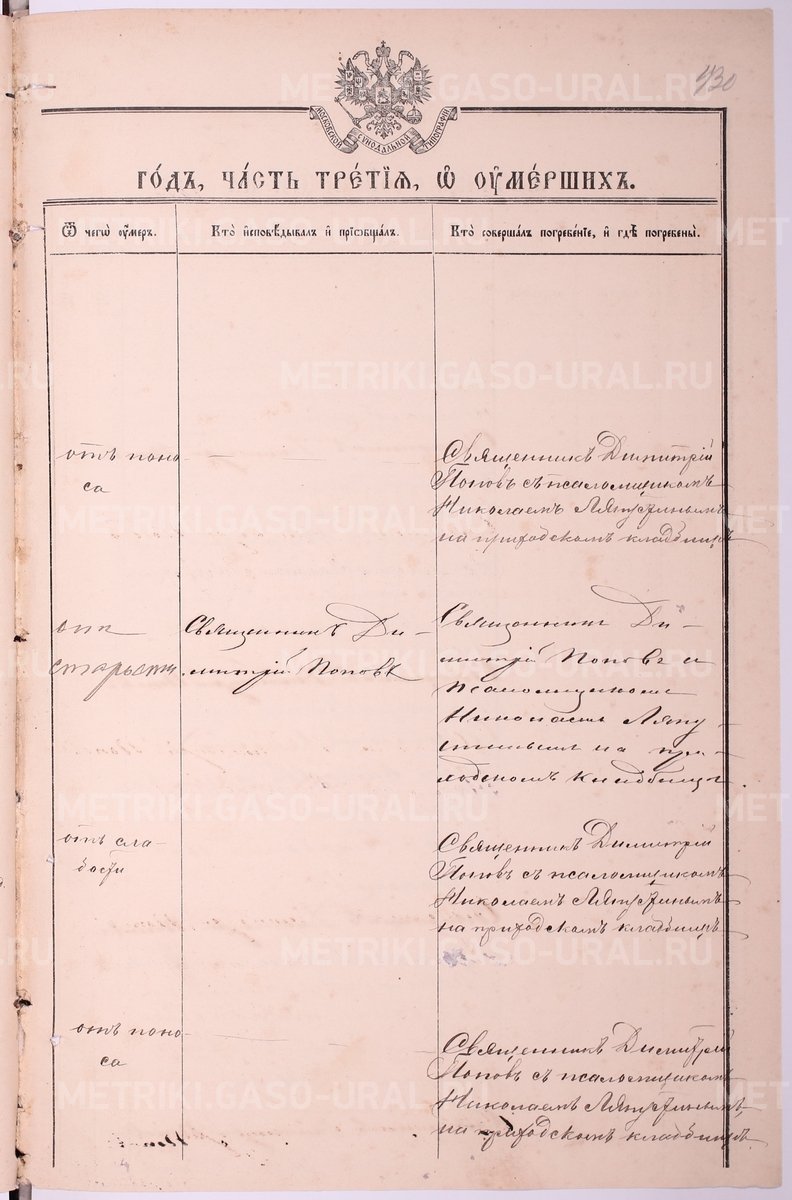 430
МОСКОВСКОЙ СѴНОДАЛЬНОЙ ТИПОГРАФІИ
ГО́ДЪ, ЧА́СТЬ ТРЕ́ТІЯ, Ѡ҆ ОУ҆МЕ́РШИХЪ.
Ѿ чегѡ̀ оу҆́меръ.
Кто̀ и҆сповѣ́дывалъ и҆ прїѡбща́лъ.
Кто̀ соверша́лъ погребе́нїе, и҆ гдѣ̀ погребены̀.
отъ поно
са
Священникъ Димитрій
Поповъ съ псаломщикомъ
Николаемъ Ляпустинымъ
на приходскомъ кладбищѣ
отъ
старости
Священникъ Ди-
митрій Поповъ
Священникъ Ди-
митрій Поповъ и
псаломщикомъ
Николаемъ Ляпу-
стинымъ на при-
ходскомъ кладбищѣ.
отъ сла-
бости
Священникъ Димитрій
Поповъ съ псаломщикомъ
Николаемъ Ляпустинымъ
на приходскомъ кладбищѣ
отъ поно-
са
Священникъ Димитрій
Поповъ съ псаломщикомъ
Николаемъ Ляпустинымъ,
на приходскомъ кладбищѣ.
METRIKI.GASO-URAL.RU